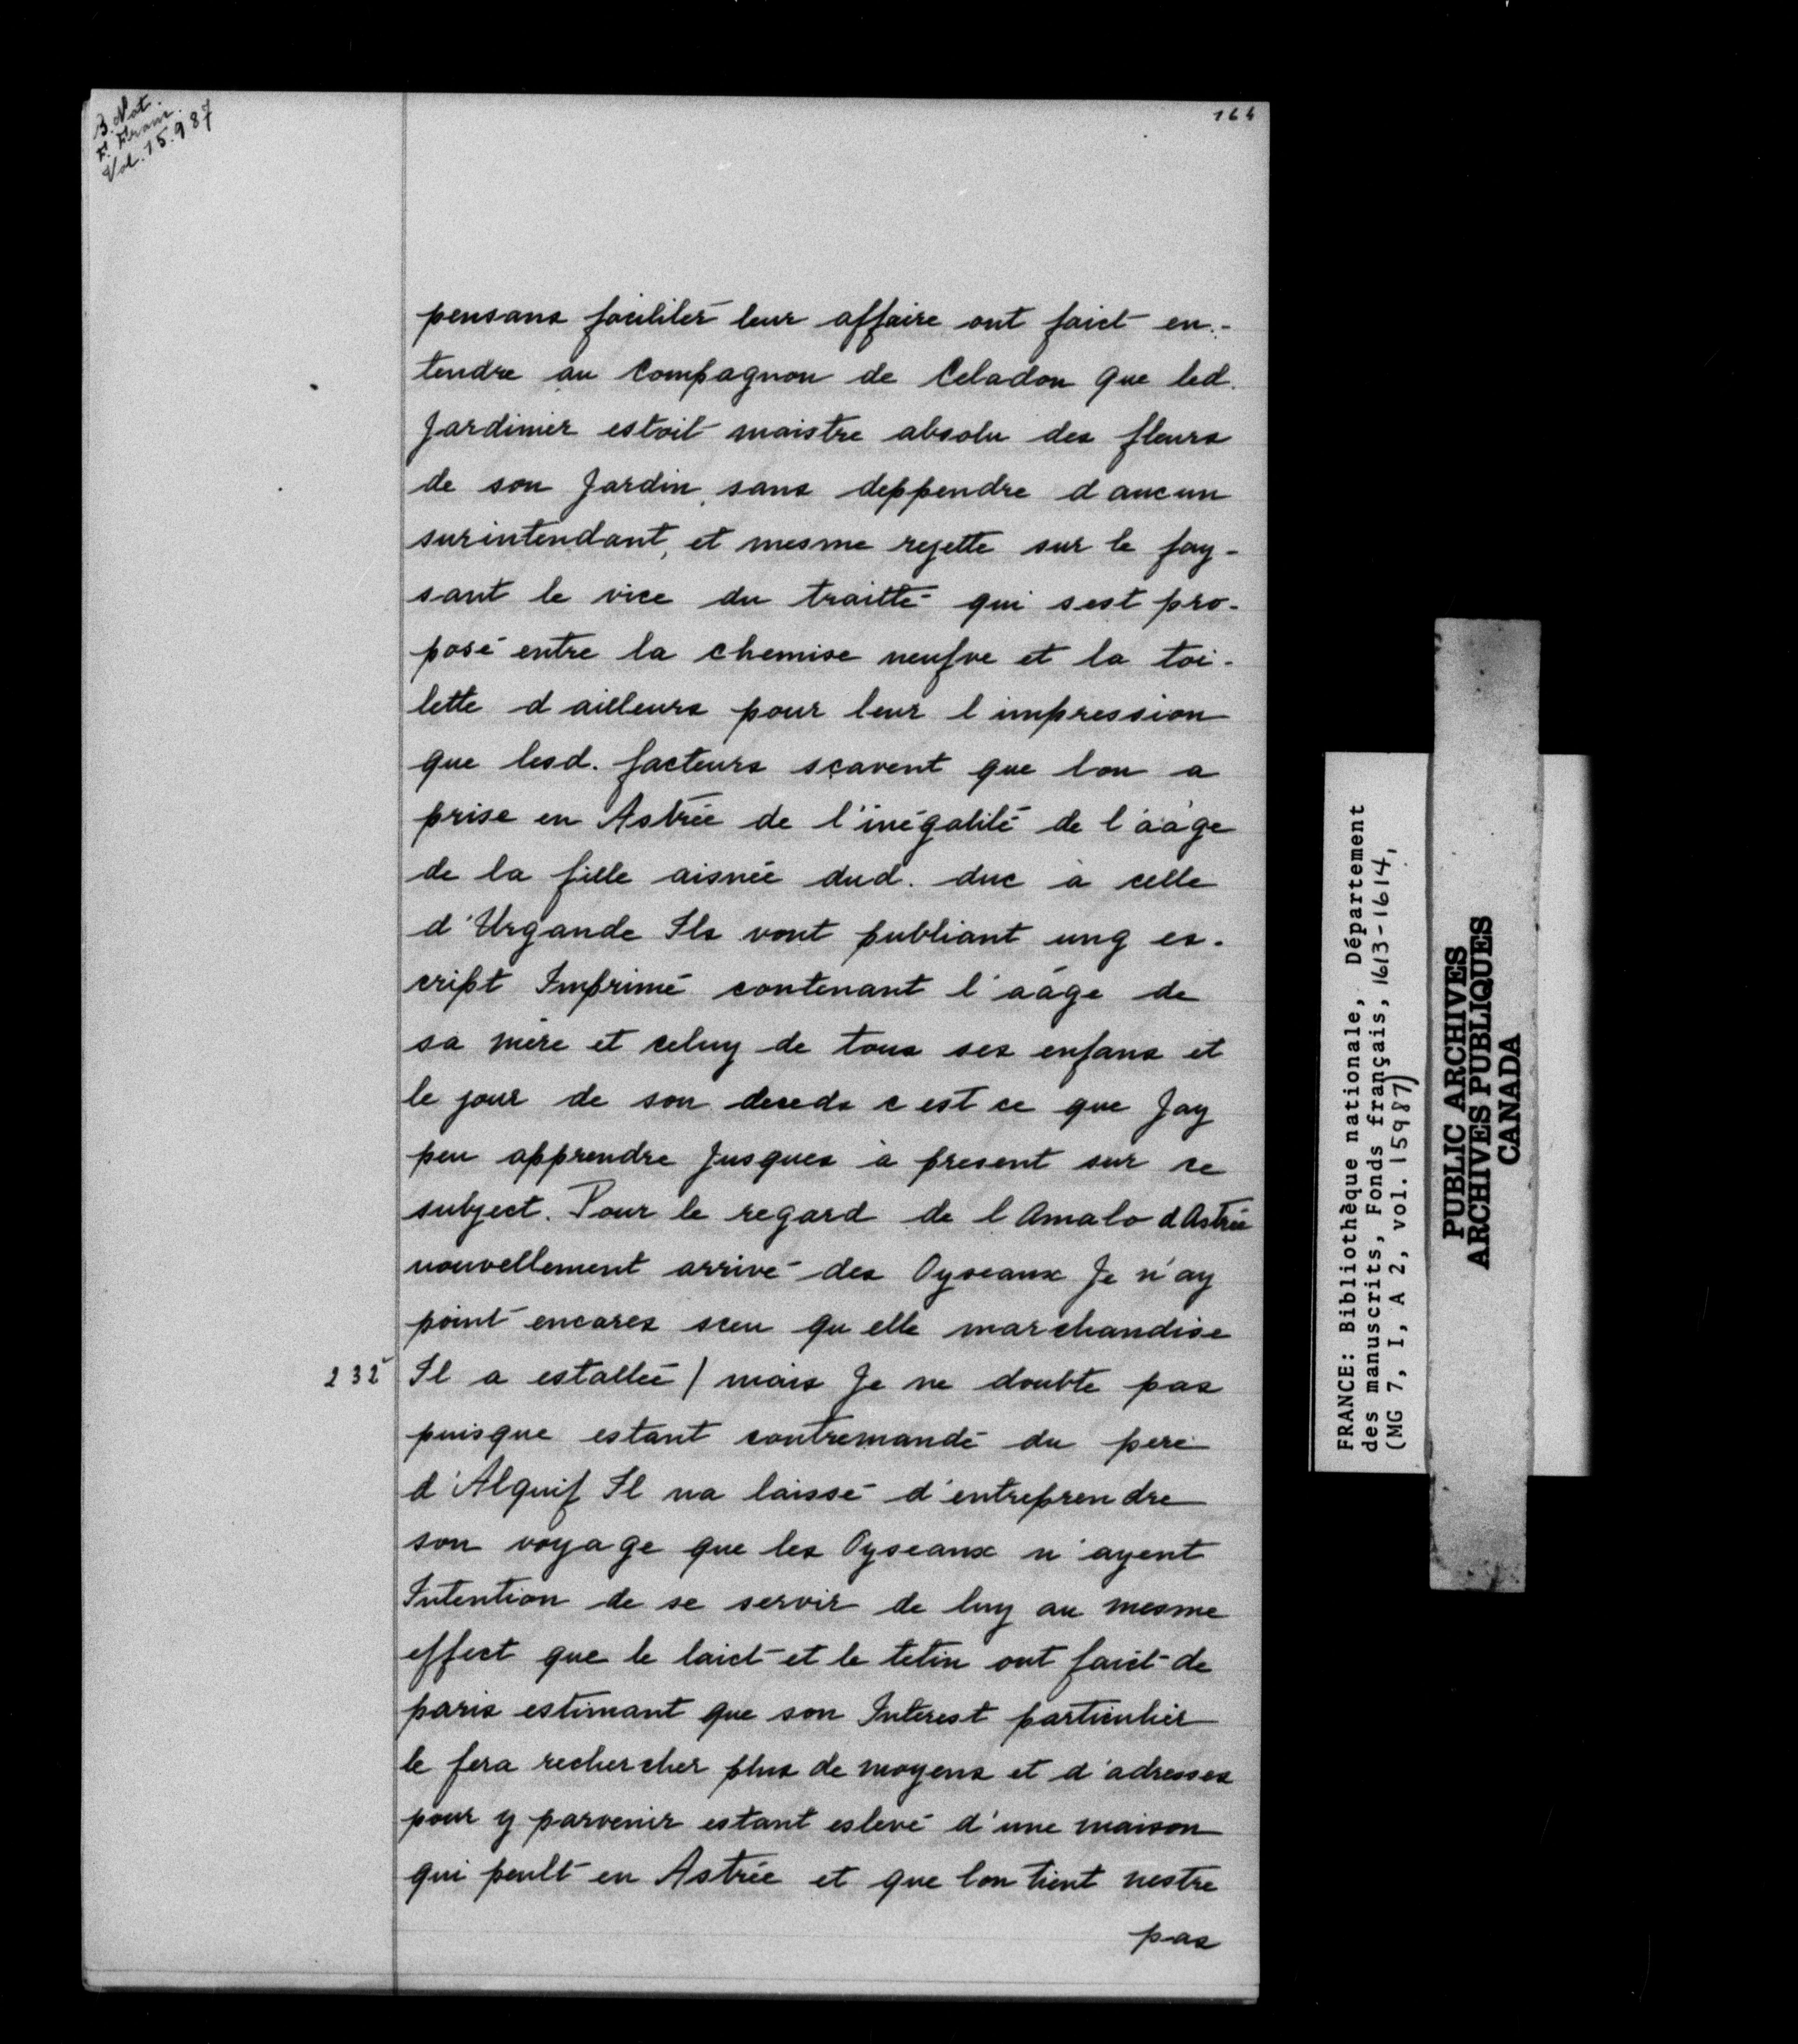 B. Nat.
F. Franc.
Vol. 15.987
164
pensans faciliter leur affaire ont faict en-
tendre au Compagnon de Celadon que led.
Jardinier estoit maistre absolu des fleurs
de son Jardin, sans deppendre d aucun
surintendant, et mesme rejette sur le fay-
sant le vice du traitté qui s est pro-
posé entre la chemise neufve et la toi-
lette d ailleurs pour leur l impression
que lesd. facteurs sçavent que lon a
prise en Astrée de l'inégalité de l'aâge
de la fille aisnée dud. duc à celle
d'Urgande Ils vont publiant ung es-
cript Imprimé contenant l'aâge de
sa mère et celuy de tous ses enfans et
le jour de son deceds c est ce que Jay
peu apprendre Jusques à present sur ce
subject. Pour le regard de l Amalo d Astrée
nouvellement arrivé des Oyseaux Je n'ay
point encores sceu qu elle marchandise
232 Il a estallée / mais Je ne doubte pas
puisque estant contremandé du pere
d'Alquif Il na laissé d'entreprendre
son voyage que les Oyseaux n'ayent
Intention de se servir de luy au mesme
effect que le laict et le tetin ont faict de
paris estimant que son Interest particulier
le fera rechercher plus de moyens et d'adresses
pour y parvenir estant eslevé d'une maison
qui peult en Astrée et que lon tient nestre
pas
FRANCE: Bibliothèque nationale, Département
des manuscrits, Fonds français, 1613-1614,
(MG 7, I, A 2, vol. 15987)
PUBLIC ARCHIVES
ARCHIVES PUBLIQUES
CANADA